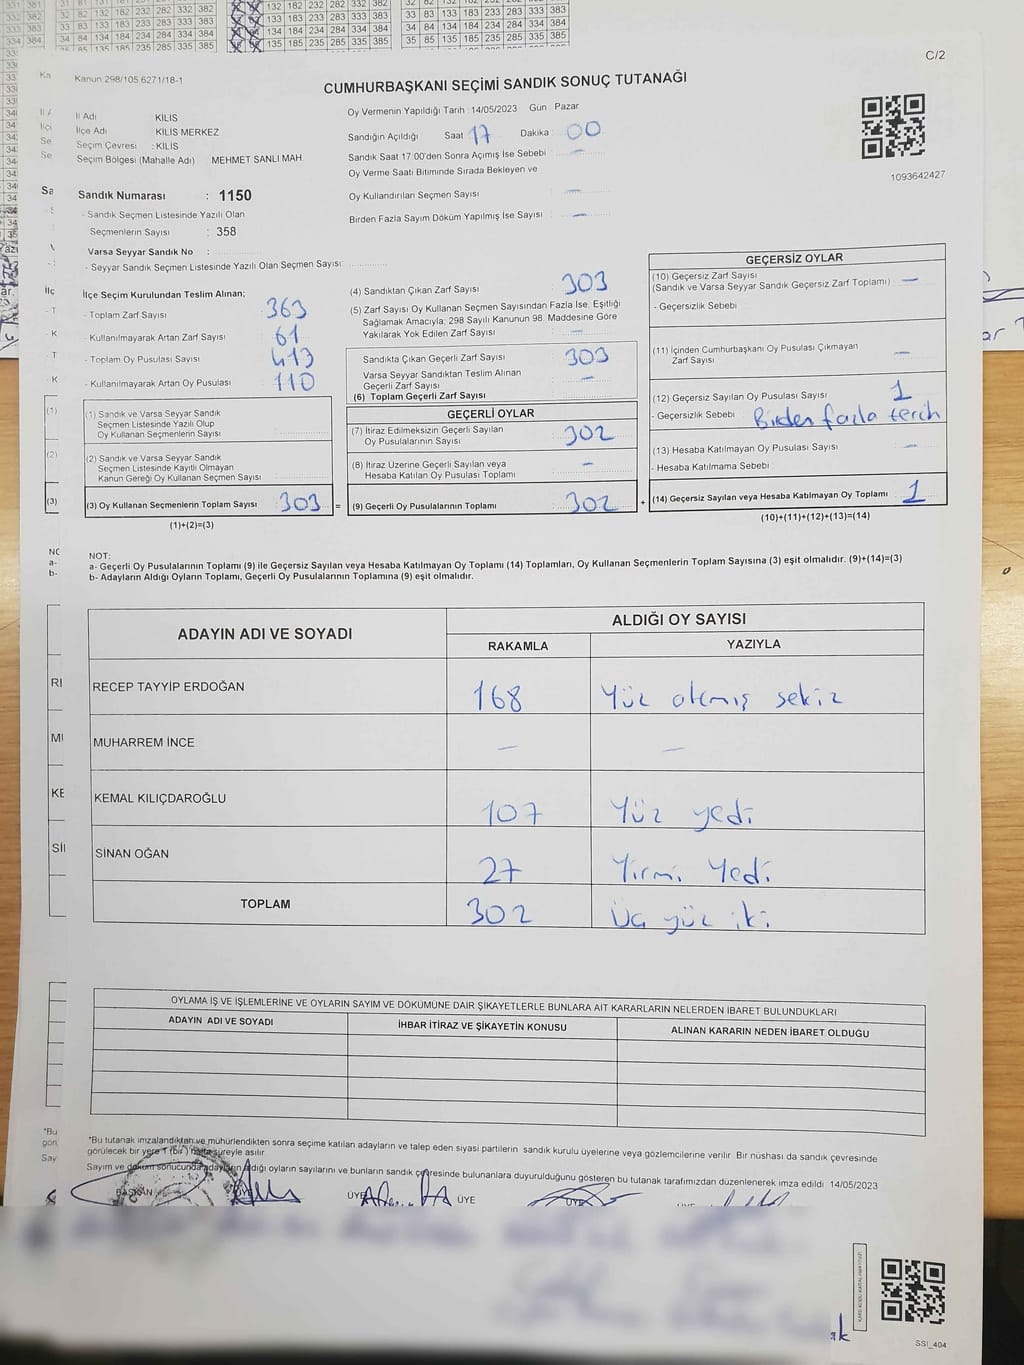 C/2
Kanun 298/105 6271/18-1
CUMHURBAŞKANI SEÇİMİ SANDIK SONUÇ TUTANAĞI
İl Adı KİLİS
İlçe Adı KİLİS MERKEZ
Seçim Çevresi : KİLİS
Seçim Bölgesi (Mahalle Adı) MEHMET SANLI MAH.
Sandık Numarası : 1150
- Sandık Seçmen Listesinde Yazılı Olan
Seçmenlerin Sayısı : 358
Varsa Seyyar Sandık No :
- Seyyar Sandık Seçmen Listesinde Yazılı Olan Seçmen Sayısı:
Oy Vermenin Yapıldığı Tarih : 14/05/2023 Gün Pazar
Sandığın Açıldığı Saat 17 Dakika 00
Sandık Saat 17:00'den Sonra Açımış İse Sebebi –
Oy Verme Saati Bitiminde Sırada Bekleyen ve
Oy Kullandırılan Seçmen Sayısı –
Birden Fazla Sayım Döküm Yapılmış İse Sayısı –
1093642427
İlçe Seçim Kurulundan Teslim Alınan;
- Toplam Zarf Sayısı 363
- Kullanılmayarak Artan Zarf Sayısı 61
- Toplam Oy Pusulası Sayısı 413
- Kullanılmayarak Artan Oy Pusulası 110
(1) Sandık ve Varsa Seyyar Sandık
Seçmen Listesinde Yazılı Olup
Oy Kullanan Seçmenlerin Sayısı
(2) Sandık ve Varsa Seyyar Sandık
Seçmen Listesinde Kayıtlı Olmayan
Kanun Gereği Oy Kullanan Seçmen Sayısı
(3) Oy Kullanan Seçmenlerin Toplam Sayısı 303 =
(1)+(2)=(3)
(4) Sandıktan Çıkan Zarf Sayısı 303
(5) Zarf Sayısı Oy Kullanan Seçmen Sayısından Fazla İse, Eşitliği
Sağlamak Amacıyla; 298 Sayılı Kanunun 98. Maddesine Göre
Yakılarak Yok Edilen Zarf Sayısı –
Sandıkta Çıkan Geçerli Zarf Sayısı 303
Varsa Seyyar Sandıktan Teslim Alınan
Geçerli Zarf Sayısı –
(6) Toplam Geçerli Zarf Sayısı
GEÇERLİ OYLAR
(7) İtiraz Edilmeksizin Geçerli Sayılan
Oy Pusulalarının Sayısı 302
(8) İtiraz Üzerine Geçerli Sayılan veya
Hesaba Katılan Oy Pusulası Toplamı –
(9) Geçerli Oy Pusulalarının Toplamı 302 +
GEÇERSİZ OYLAR
(10) Geçersiz Zarf Sayısı
(Sandık ve Varsa Seyyar Sandık Geçersiz Zarf Toplamı) –
- Geçersizlik Sebebi
(11) İçinden Cumhurbaşkanı Oy Pusulası Çıkmayan
Zarf Sayısı –
(12) Geçersiz Sayılan Oy Pusulası Sayısı 1
- Geçersizlik Sebebi Birden fazla tercih
(13) Hesaba Katılmayan Oy Pusulası Sayısı –
- Hesaba Katılmama Sebebi
(14) Geçersiz Sayılan veya Hesaba Katılmayan Oy Toplamı 1
(10)+(11)+(12)+(13)=(14)
NOT:
a- Geçerli Oy Pusulalarının Toplamı (9) ile Geçersiz Sayılan veya Hesaba Katılmayan Oy Toplamı (14) Toplamları, Oy Kullanan Seçmenlerin Toplam Sayısına (3) eşit olmalıdır. (9)+(14)=(3)
b- Adayların Aldığı Oyların Toplamı, Geçerli Oy Pusulalarının Toplamına (9) eşit olmalıdır.
ADAYIN ADI VE SOYADI ALDIĞI OY SAYISI
RAKAMLA YAZIYLA
RECEP TAYYİP ERDOĞAN 168 Yüz atmış sekiz
MUHARREM İNCE – –
KEMAL KILIÇDAROĞLU 107 Yüz yedi
SİNAN OĞAN 27 Yirmi Yedi
TOPLAM 302 Üç yüz iki
OYLAMA İŞ VE İŞLEMLERİNE VE OYLARIN SAYIM VE DÖKÜMÜNE DAİR ŞİKAYETLERLE BUNLARA AİT KARARLARIN NELERDEN İBARET BULUNDUKLARI
ADAYIN ADI VE SOYADI İHBAR İTİRAZ VE ŞİKAYETİN KONUSU ALINAN KARARIN NEDEN İBARET OLDUĞU
*Bu tutanak imzalandıktan ve mühürlendikten sonra seçime katılan adayların ve talep eden siyasi partilerin sandık kurulu üyelerine veya gözlemcilerine verilir. Bir nüshası da sandık çevresinde
görülecek bir yere 1 (bir) hafta süreyle asılır.
Sayım ve döküm sonucunda adayların aldığı oyların sayılarını ve bunların sandık çevresinde bulunanlara duyurulduğunu gösteren bu tutanak tarafımızdan düzenlenerek imza edildi. 14/05/2023
BAŞKAN ÜYE ÜYE ÜYE ÜYE
SSİ_404